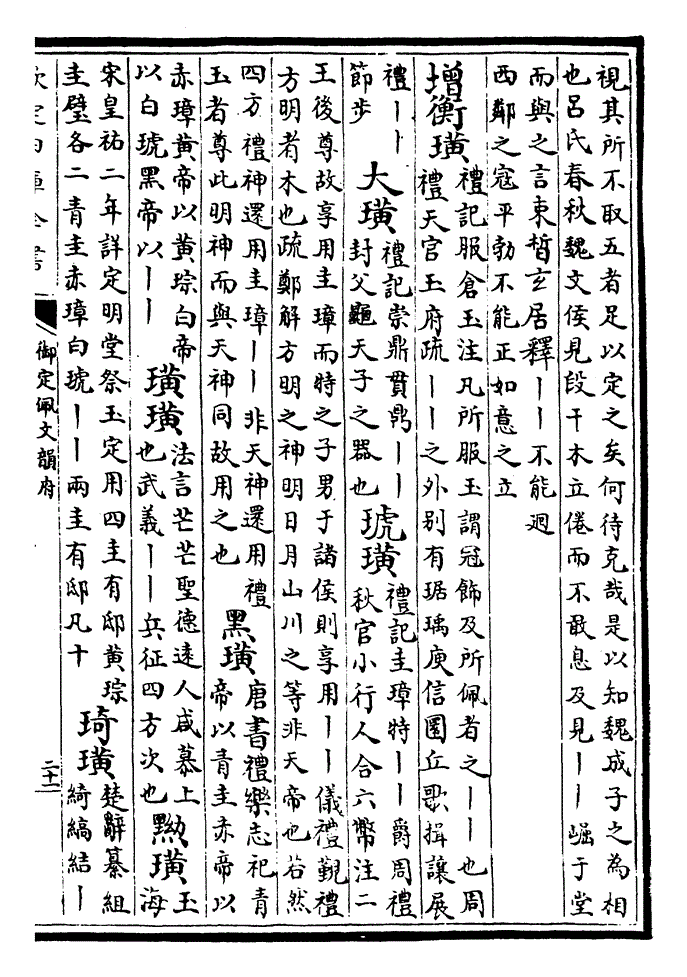 視其所不取五者足以定之矣何待克哉是以知魏成子之為相
也呂氏春秋魏文侯見段干木立倦而不敢息及見丨丨崛于堂
而與之言東晳玄居釋丨丨不能迴
西鄰之寇平勃不能正如意之立
增衡璜
禮記服倉玉注凡所服玉謂冠飾及所佩者之丨丨也周
禮天官玉府疏丨丨之外别有琚瑀庾信圜丘歌揖讓展
禮丨丨
節步
大璜
禮記崇鼎貫鼎丨丨
封父龜天子之器也
琥璜
禮記圭璋特丨丨爵周禮
秋官小行人合六幣注二
王後尊故享用圭璋而特之子男于諸侯則享用丨丨儀禮覲禮
方明者木也疏鄭解方明之神明日月山川之等非天帝也若然
四方禮神還用圭璋丨丨非天神還用禮
玉者尊此明神而與天神同故用之也
黑璜
唐書禮樂志祀青
帝以青圭赤帝以
赤璋黃帝以黃琮白帝
以白琥黑帝以丨丨
璜璜
法言芒芒聖德遠人咸慕上
也武義丨丨兵征四方次也
黝璜
玉
海
宋皇祐二年詳定明堂祭玉定用四圭有邸黃琮
圭璧各二青圭赤璋白琥丨丨兩圭有邸凡十
琦璜
楚辭纂組
綺縞結丨
欽定四庫全書
御定佩文韻府
二十二